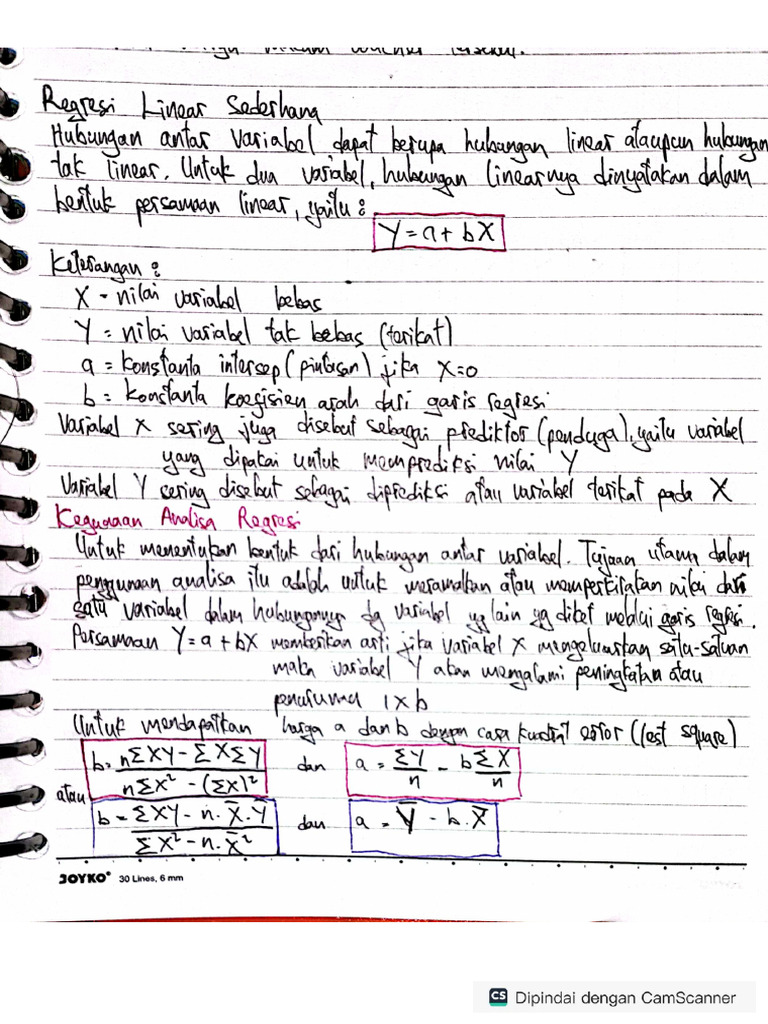 Regresi Linear Sederhana
Hubungan antar variabel dapat berupa hubungan linear ataupun hubungan
tak linear. Untuk dua variabel, hubungan linearnya dinyatakan dalam
bentuk persamaan linear, yaitu :
Y = a + bX
Keterangan :
X = nilai variabel bebas
Y = nilai variabel tak bebas (terikat)
a = konstanta intersep (pintasan) jika X=0
b = konstanta koefisien arah dari garis regresi
Variabel X sering juga disebut sebagai prediktor (penduga), yaitu variabel
yang dipakai untuk memprediksi nilai Y
Variabel Y sering disebut sebagai diprediksi atau variabel terikat pada X
Kegunaan Analisa Regresi
Untuk menentukan bentuk dari hubungan antar variabel. Tujuan utama dalam
penggunaan analisa itu adalah untuk meramalkan atau memperkirakan nilai dari
satu variabel dalam hubungannya dg variabel yg lain yg diket melalui garis regresi.
Persamaan Y = a + bX memberikan arti jika variabel X mengeluarkan satu-satuan
maka variabel Y akan mengalami peningkatan atau
penurunan 1 x b
Untuk mendapatkan harga a dan b dengan cara error (lest square)
b = nΣXY - ΣXΣY / nΣX² - (ΣX)² dan a = ΣY/n - bΣX/n
atau
b = ΣXY - n. X̄.Ȳ / ΣX² - n. X̄² dan a = Ȳ - b. X̄
JOYKO® 30 Lines, 6 mm
CS Dipindai dengan CamScanner